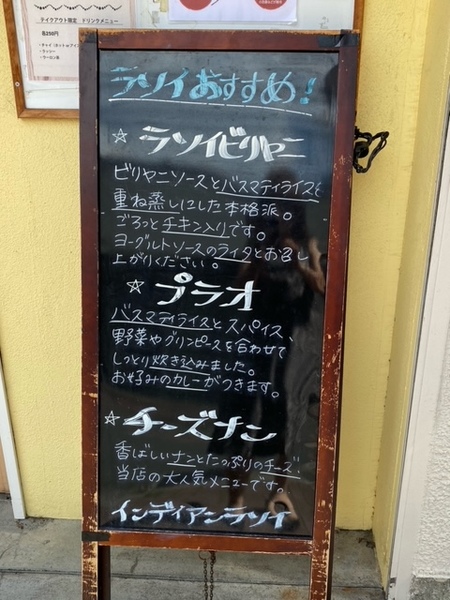 テイクアウト限定 ドリンクメニュー
各250円
ラソイおすすめ!
☆ ラソイビリヤニ
ビリヤニソースとバスマティライスを
重ね蒸しにした本格派。
ごろっとチキン入りです。
ヨーグルトソースのライタとお召し
上がりください。
☆ プラオ
バスマティライスとスパイス、
野菜やグリンピースを合わせて
しっとり炊き込みました。
お好みのカレーがつきます。
☆ チーズナン
香ばしいナンとたっぷりのチーズ
当店の大人気メニューです。
インディアンラソイ